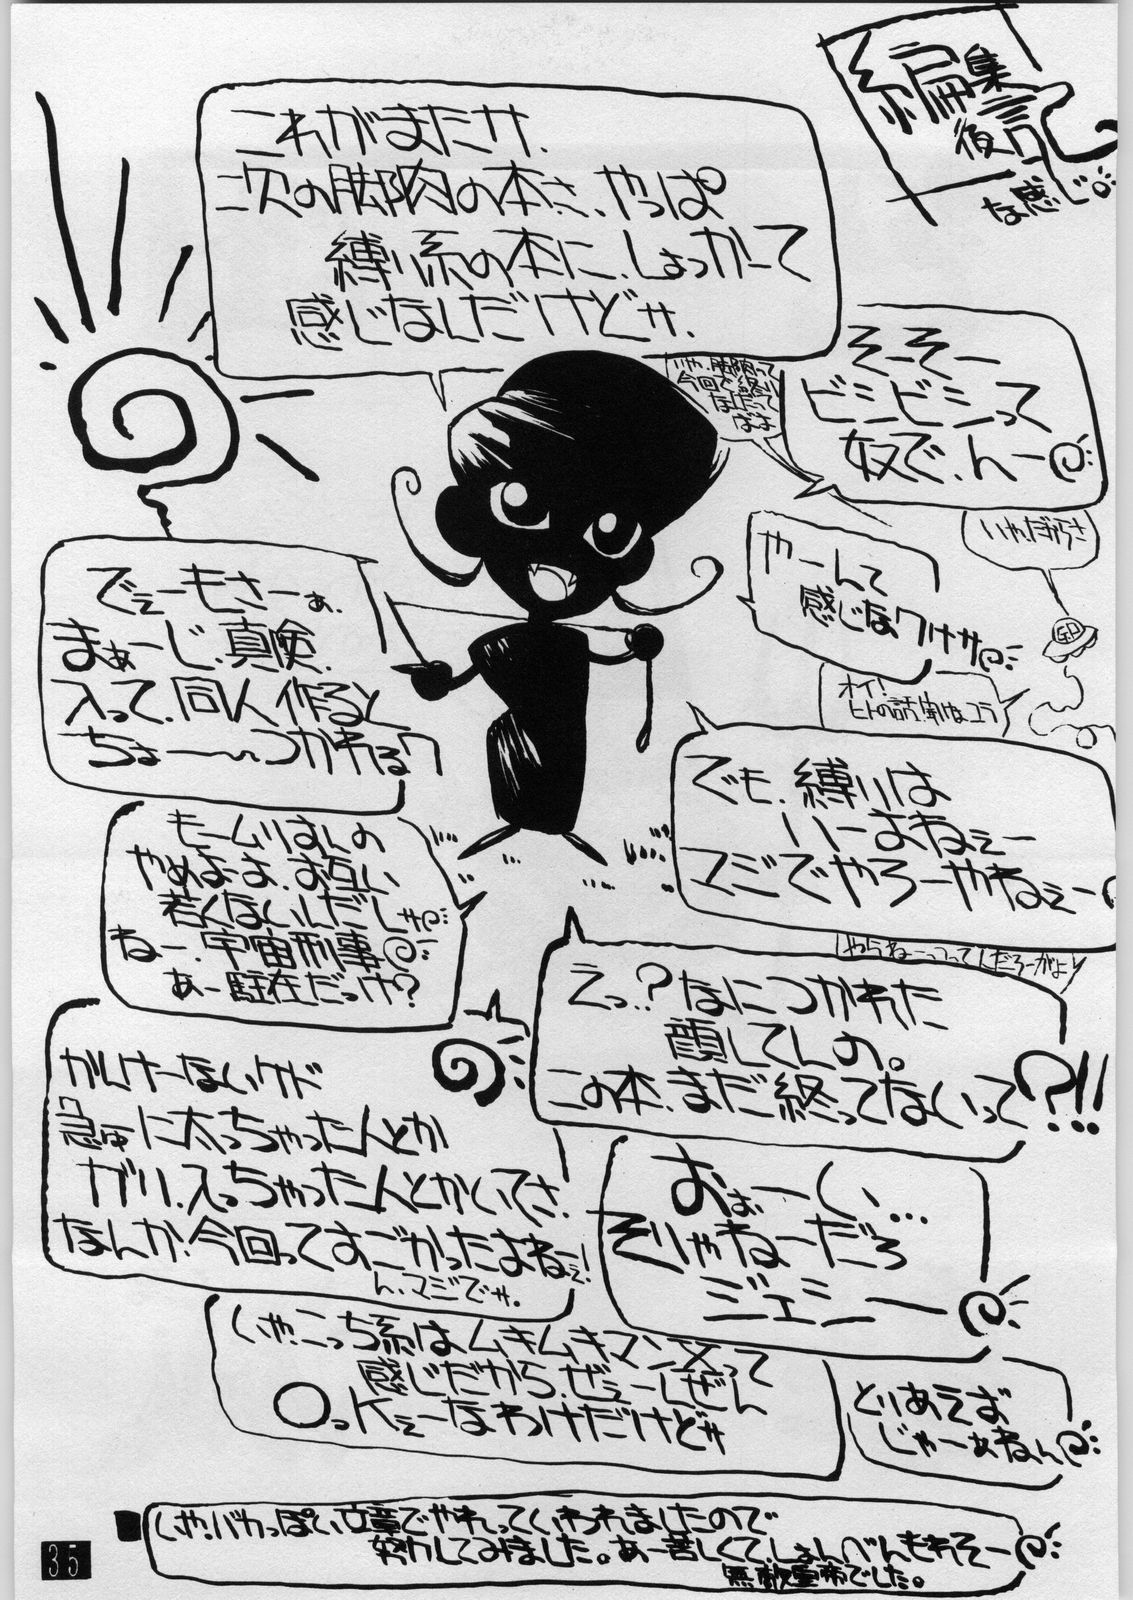 編集
後記
な感じ
これがまたサ.
次の脚肉の本さ、やっぱ
縛り系の本に、しょっかーて
感じなんだけどサ.
そーそー
ビシビシって
奴で、んー
いや、脚肉って
今回で終り
なんだって
ばよ
いや、だからさ
やーんて
感じなワケサ
GP
オイ!
ヒトの話、聞けよコラ
でぇーもさーぁ.
まぁーじ、真険.
入って、同人作ると
ちょー〜つかれるワ
でも、縛りは
いーよねぇー
マジでやろーやねぇー
やらねーっつってんだろーがよ
もームリすんの
やめよーよ.お互い
若くないんだしサ
ねー、宇宙刑事
あー駐在だっけ?
えっ?なにつかれた
顔してんの。
この本、まだ終ってないって?!!
かんけーないケド
急に太っちゃったんとか
ガリ入っちゃったんとかいてさ.
なんか、今回ってすごかったよねーぇ!
ん、マジでサ.
おぉーい...
そりゃねーだろ
ジェシー
いや、こっち系はムキムキマン文って
感じだから、ぜぇーんぜん
OっKぇーなわけだけどサ
とりあえず
じゃーぁねん
いや!バカっぽい文章でやれっていわれましたので
努力してみました。あー苦しくて、しょんべんもれそー
無敵皇帝でした。
35